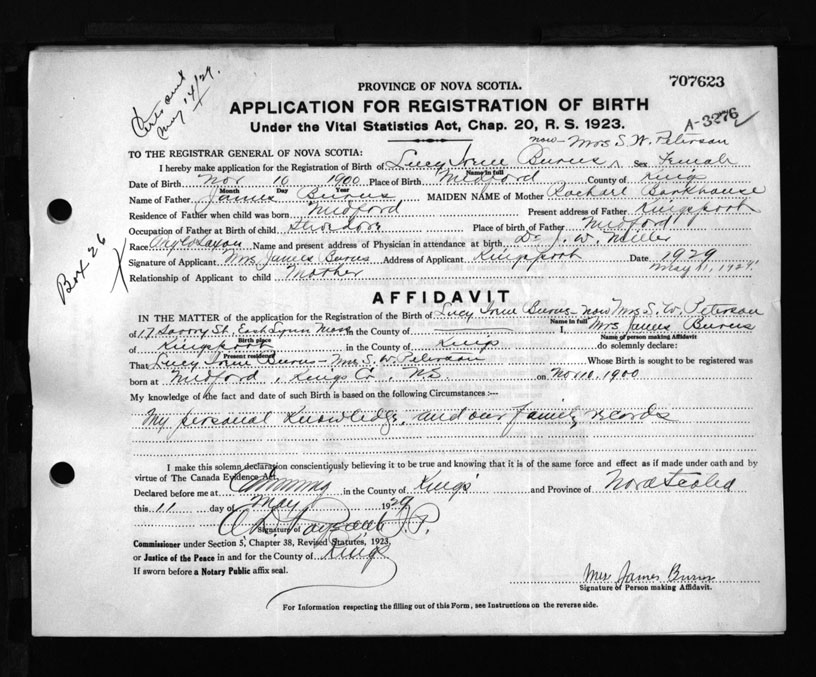 Cert sent
May 14/29.
PROVINCE OF NOVA SCOTIA.
707623
APPLICATION FOR REGISTRATION OF BIRTH
A-3276
Under the Vital Statistics Act, Chap. 20, R. S. 1923.
now - Mrs S. W. Peterson
TO THE REGISTRAR GENERAL OF NOVA SCOTIA:
I hereby make application for the Registration of Birth of Lucy Irene Burns Sex Female
Name in full
Date of Birth Nov 10 1900 Place of Birth Medford County of Kings
Month Day Year
Name of Father James Burns MAIDEN NAME of Mother Rachael Barkhouse
Residence of Father when child was born Medford Present address of Father Kingsport
Occupation of Father at Birth of child Place of birth of Father Medford
Race Anglo Saxon Name and present address of Physician in attendance at birth Dr J. W. Miller
Signature of Applicant Mrs James Burns Address of Applicant Kingsport Date 1929
May 11, 1929.
Relationship of Applicant to child Mother
Box 26
AFFIDAVIT
IN THE MATTER of the application for the Registration of the Birth of Lucy Irene Burns - now Mrs S. W. Peterson
Name in full
of 17 St. East Lynn Mass in the County of I, Mrs James Burns
Birth place Name of person making Affidavit
of Kingsport in the County of Kings do solemnly declare:
Present residence
That Lucy Irene Burns - Mrs S. W. Peterson Whose Birth is sought to be registered was
born at Medford, Kings Co, N.S. on Nov 10, 1900
My knowledge of the fact and date of such Birth is based on the following Circumstances :—
My personal knowledge, and our family records
I make this solemn declaration conscientiously believing it to be true and knowing that it is of the same force and effect as if made under oath and by
virtue of The Canada Evidence Act.
Declared before me at Canning in the County of Kings and Province of Nova Scotia
this 11 day of May 1929
Signature of J.P.
Commissioner under Section 5, Chapter 38, Revised Statutes, 1923,
or Justice of the Peace in and for the County of Kings
If sworn before a Notary Public affix seal.
Mrs James Burns
Signature of Person making Affidavit.
For Information respecting the filling out of this Form, see Instructions on the reverse side.